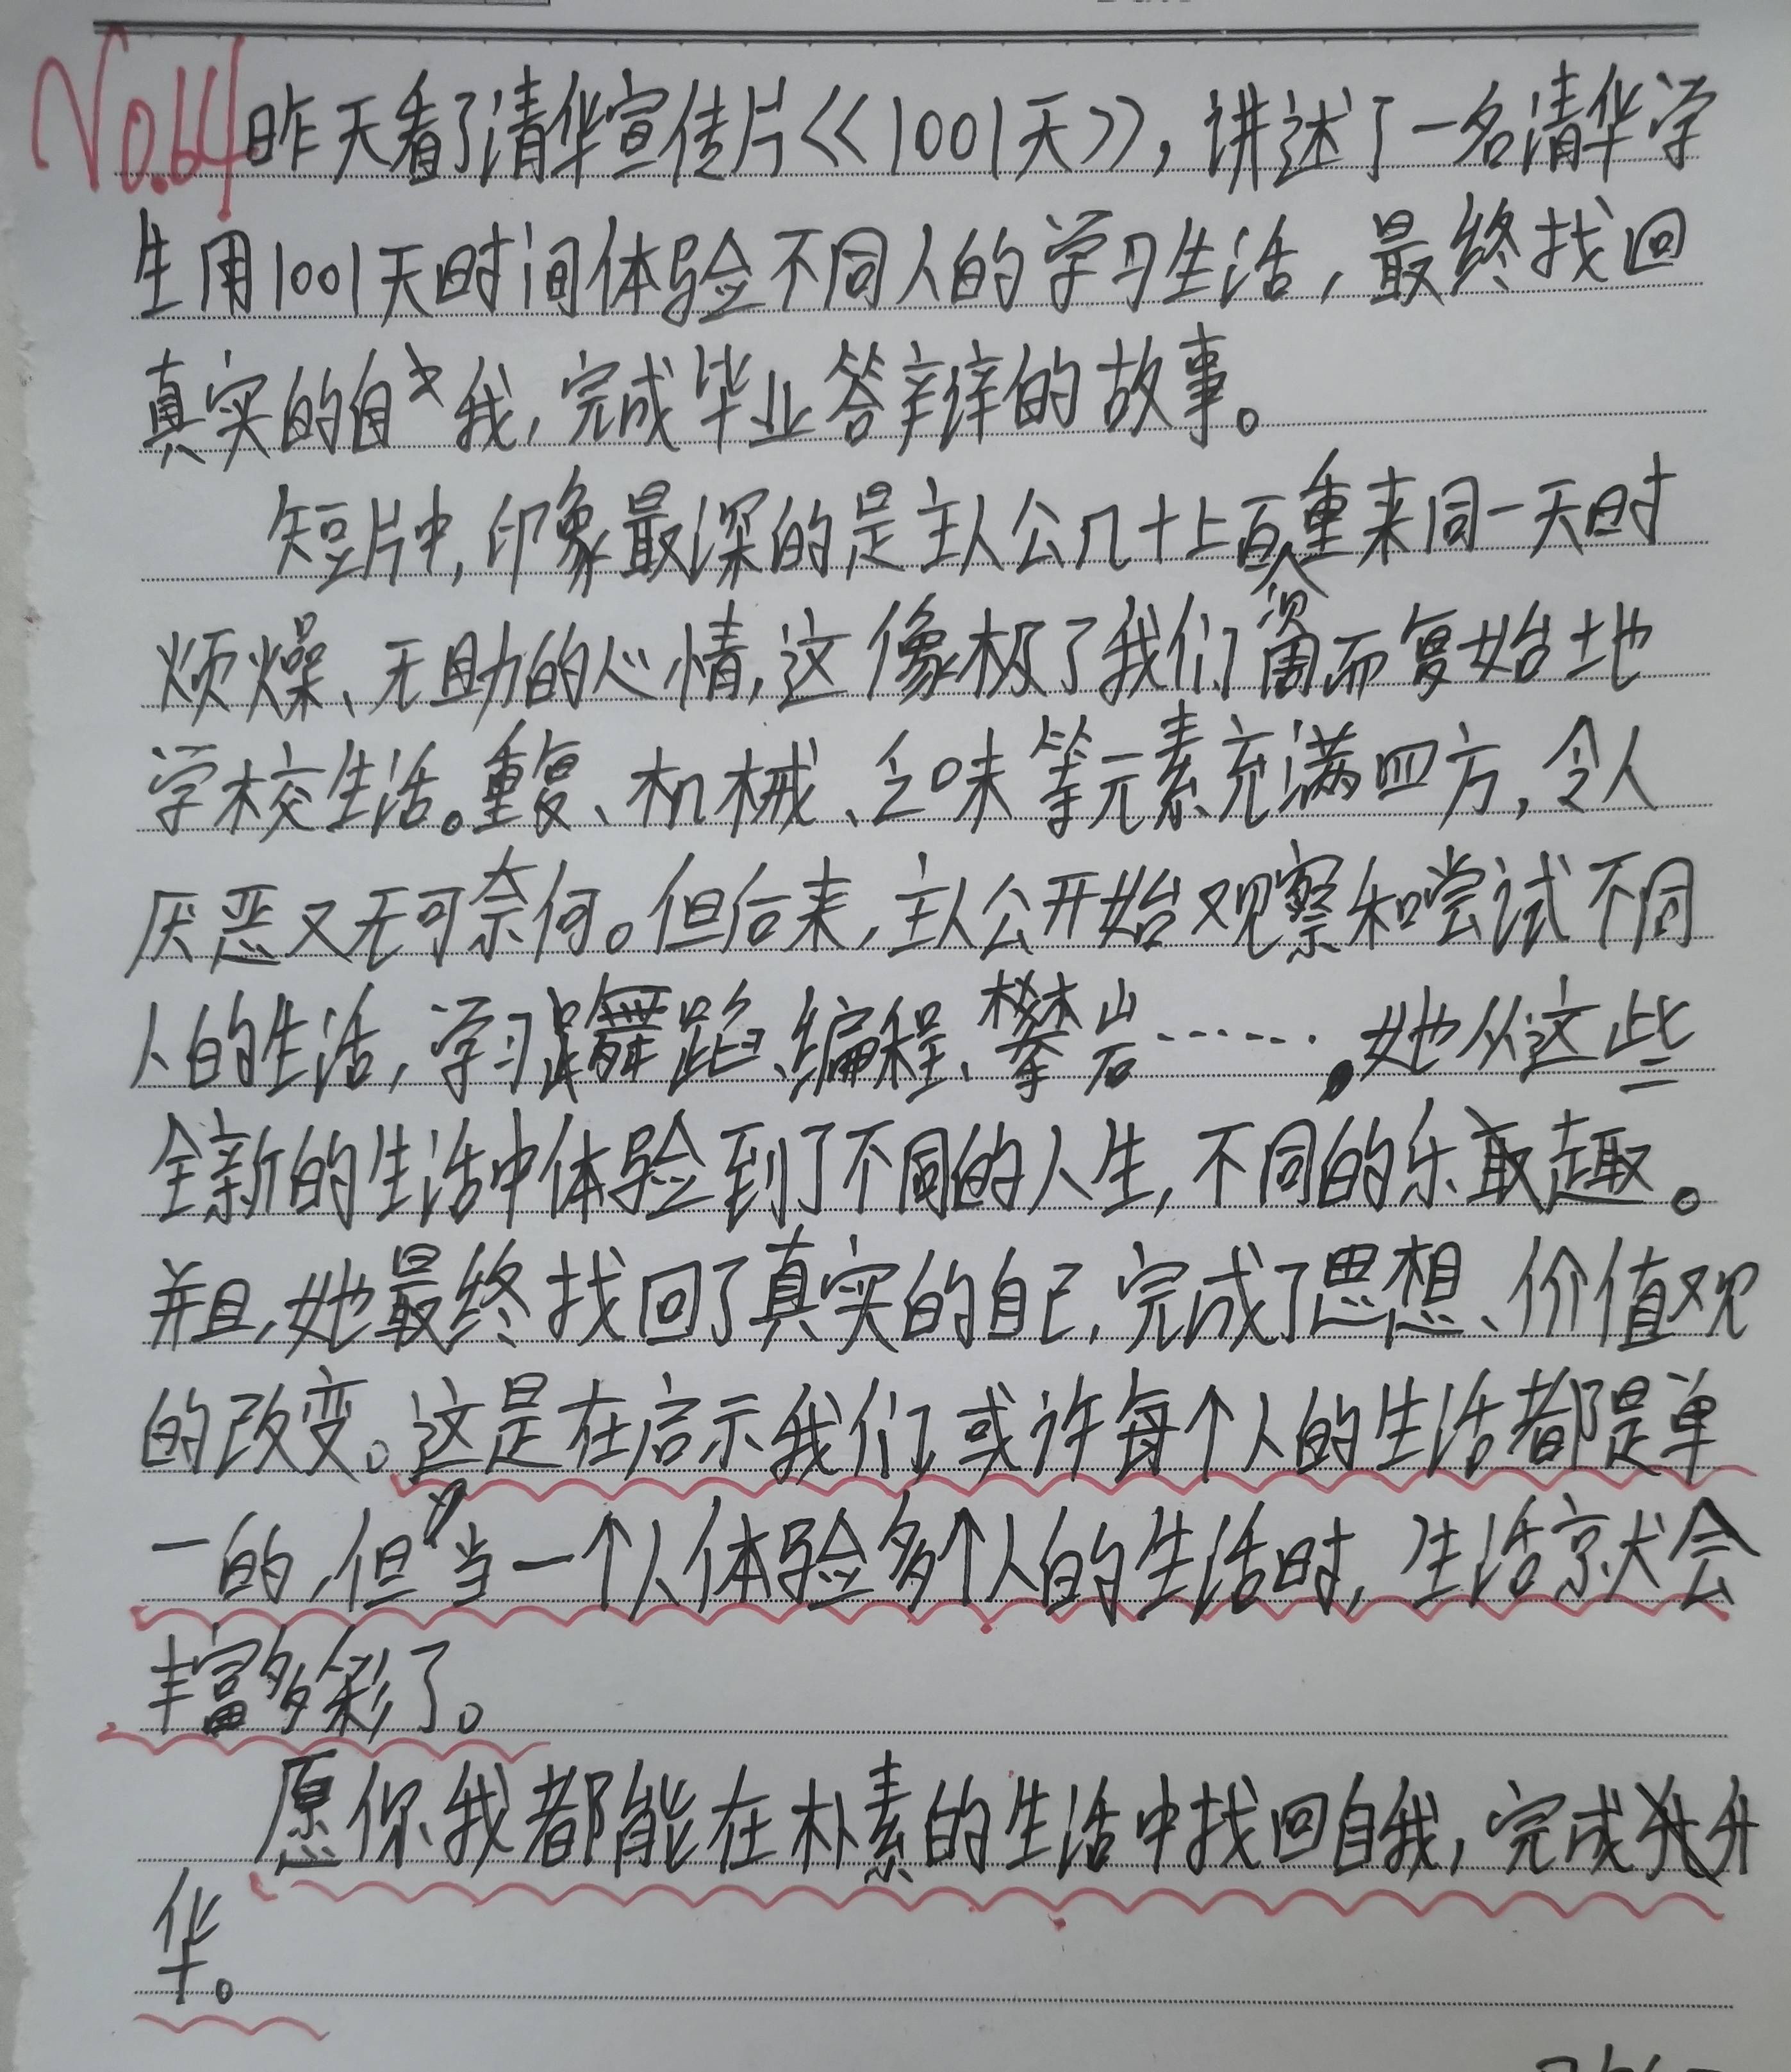 No.64 昨天看了清华宣传片《1001天》,讲述了一名清华学
生用1001天时间体验不同人的学习生活,最终找回
真实的自我,完成毕业答辩的故事。
短片中,印象最深的是主人公几十上百次重来同一天时
烦燥、无助的心情,这像极了我们周而复始地
学校生活。重复、机械、乏味等元素充满四方,令人
厌恶又无可奈何。但后来,主人公开始观察和尝试不同
人的生活,学习舞蹈、编程、攀岩……,她从这些
全新的生活中体验到了不同的人生,不同的乐趣。
并且,她最终找回了真实的自己,完成了思想、价值观
的改变。这是在启示我们,或许每个人的生活都是单
一的,但当一个人体验多个人的生活时,生活就会
丰富多彩了。
愿你我都能在朴素的生活中找回自我,完成升
华。